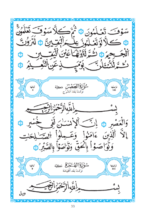 سَوْفَ تَعْلَمُونَ ثُمَّ كَلَّا سَوْفَ تَعْلَمُونَ
كَلَّا لَوْ تَعْلَمُونَ عِلْمَ الْيَقِينِ لَتَرَوُنَّ
الْجَحِيمَ ثُمَّ لَتَرَوُنَّهَا عَيْنَ الْيَقِينِ
ثُمَّ لَتُسْـَٔلُنَّ يَوْمَئِذٍ عَنِ النَّعِيمِ
سُورَةُ الْعَصْرِ
بِسْمِ اللَّهِ الرَّحْمَٰنِ الرَّحِيمِ
وَالْعَصْرِ إِنَّ الْإِنسَٰنَ لَفِي خُسْرٍ
إِلَّا الَّذِينَ ءَامَنُوا وَعَمِلُوا الصَّٰلِحَٰتِ
وَتَوَاصَوْا بِالْحَقِّ وَتَوَاصَوْا بِالصَّبْرِ
سُورَةُ الْهُمَزَةِ
بِسْمِ اللَّهِ الرَّحْمَٰنِ الرَّحِيمِ